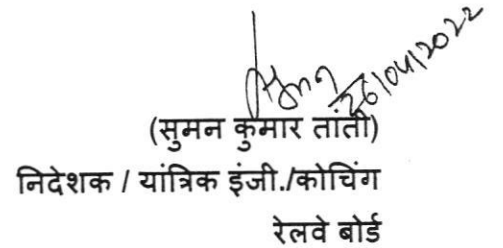 26/04/2022
(सुमन कुमार तांती)
निदेशक / यांत्रिक इंजी./कोचिंग
रेलवे बोर्ड